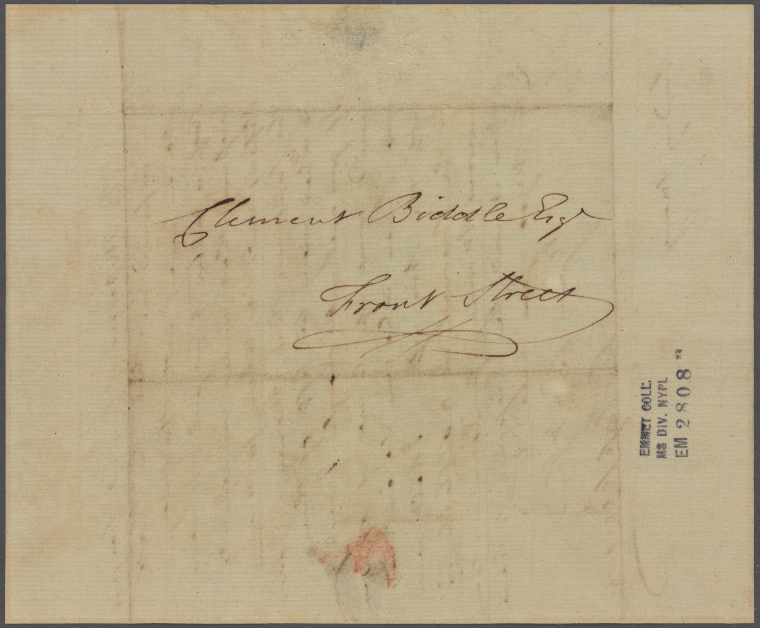 Clement Biddle Esqr
Front Street
EMMET COLL.
MS DIV. NYPL
EM 2808